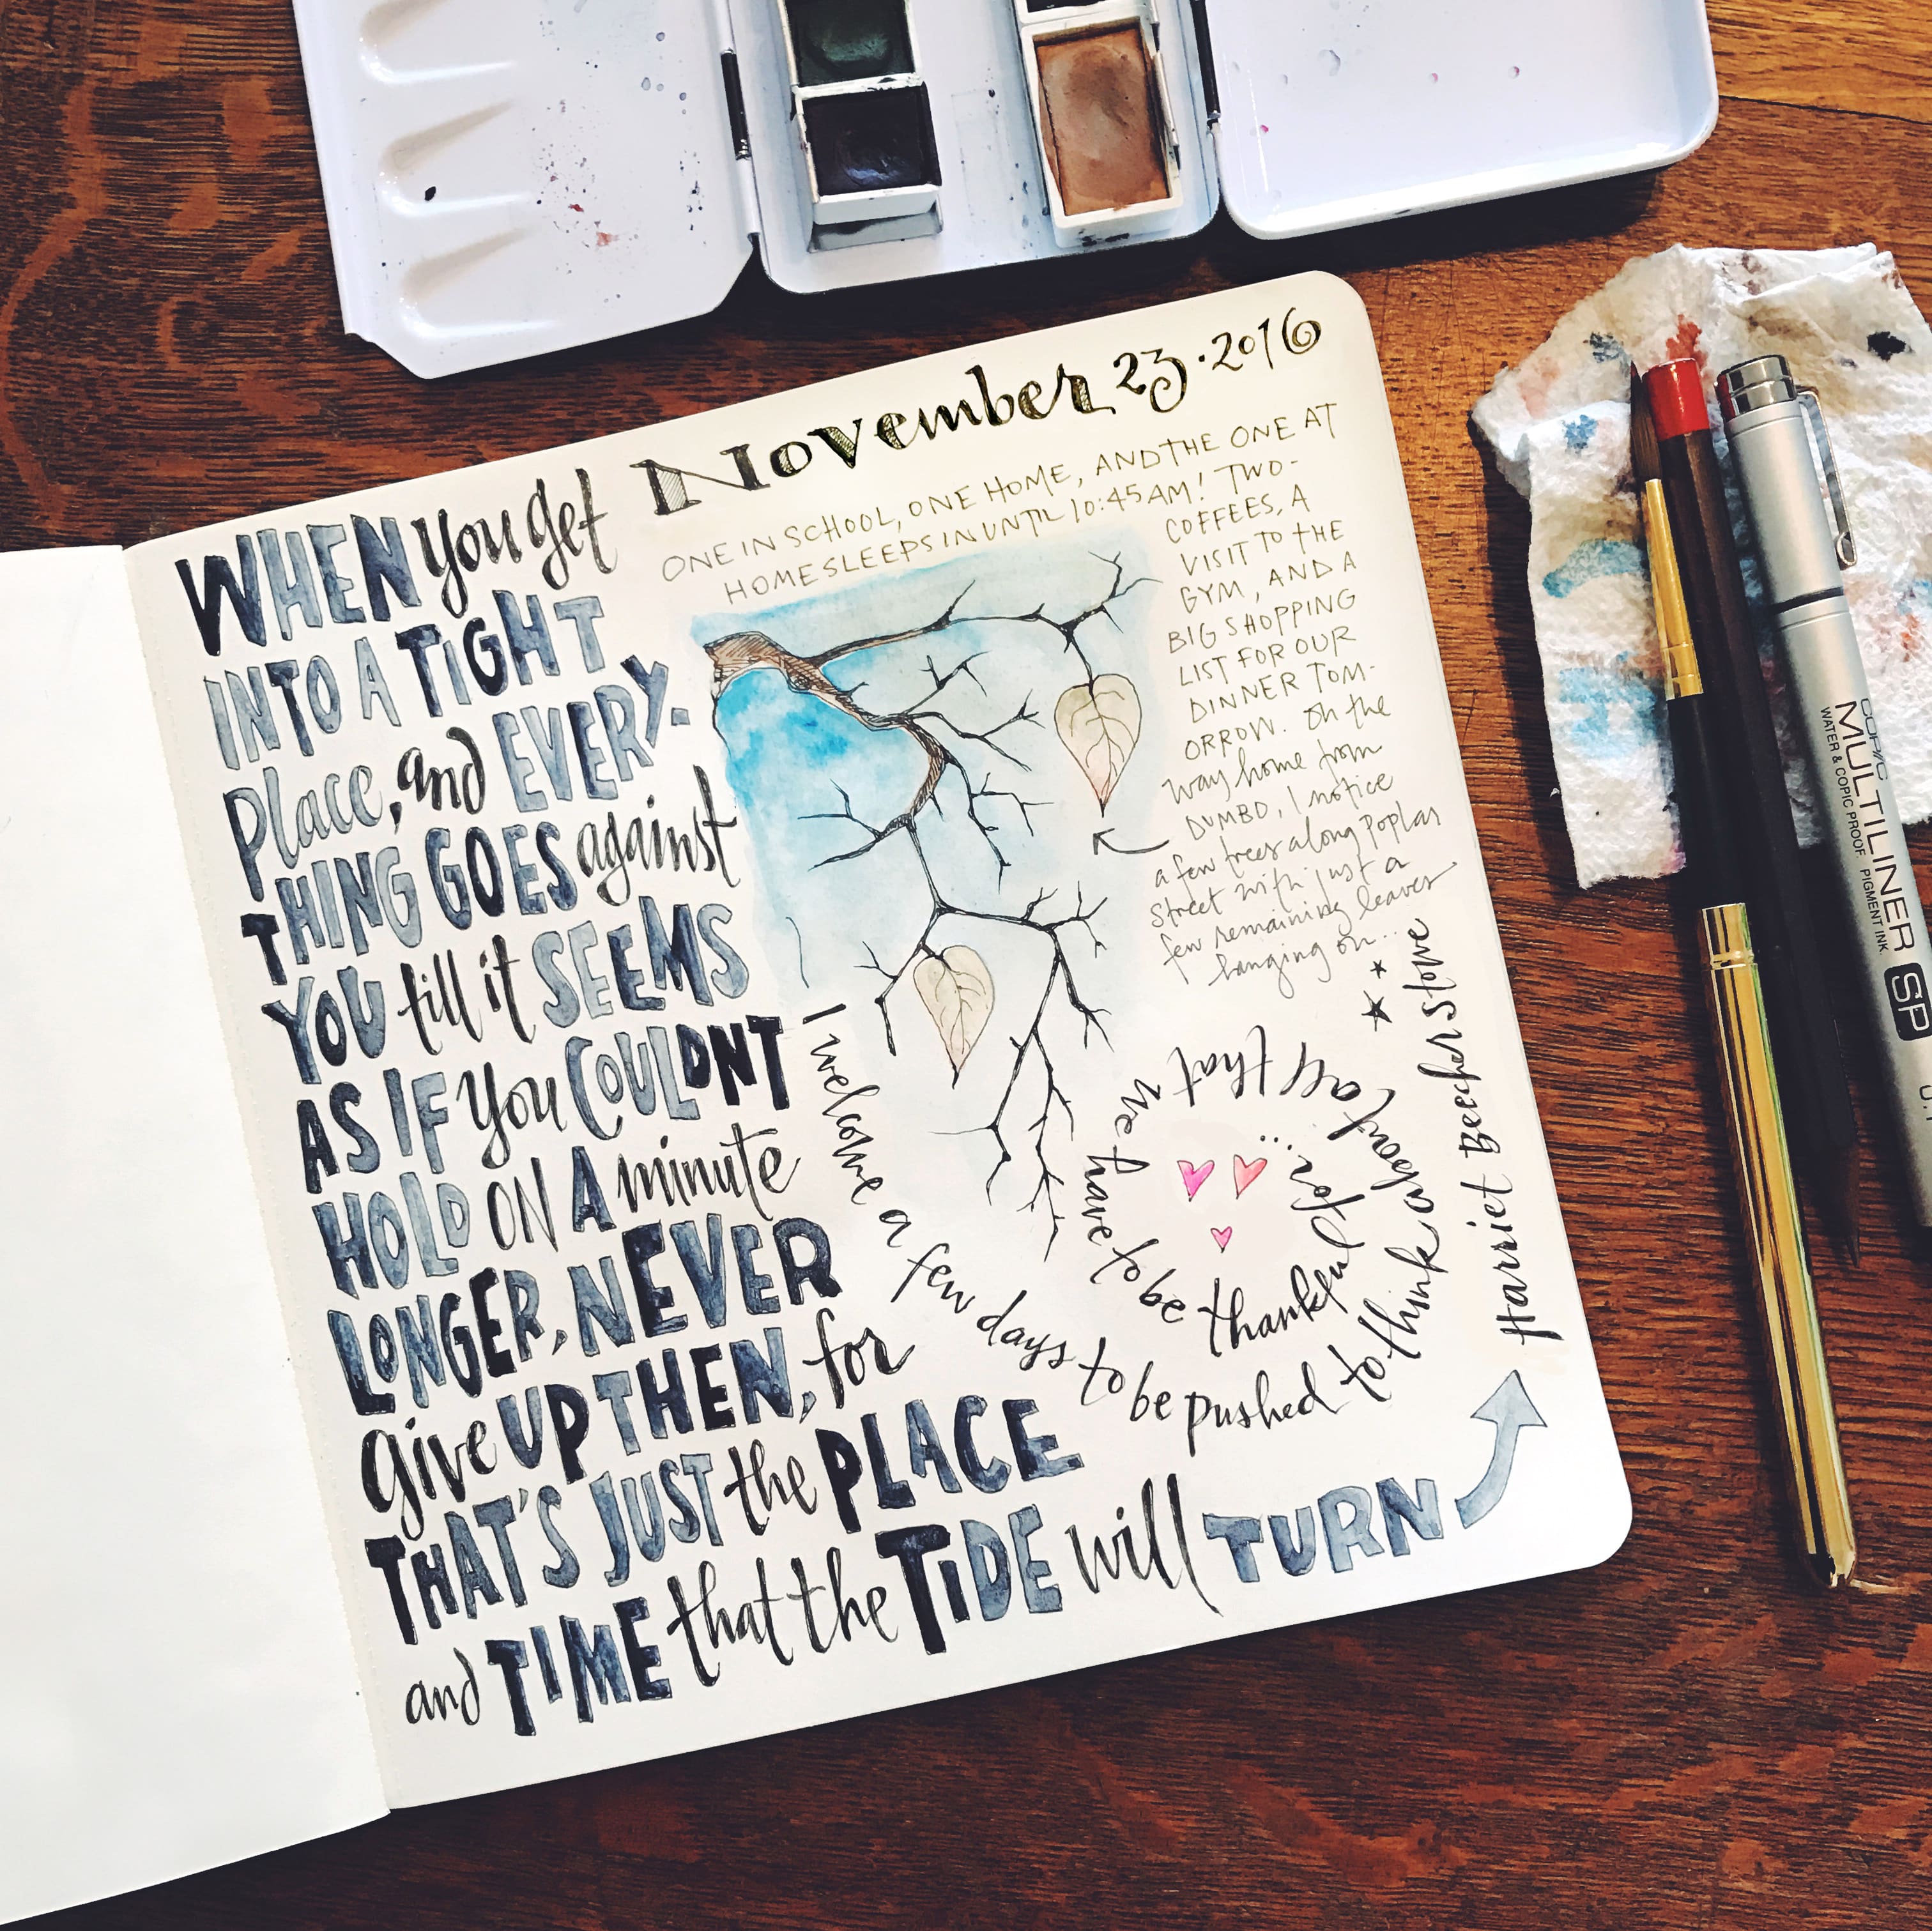 November 23·2016
ONE IN SCHOOL, ONE HOME, AND THE ONE AT
HOME SLEEPS IN UNTIL 10:45 AM! TWO-
COFFEES, A
VISIT TO THE
GYM, AND A
BIG SHOPPING
LIST FOR OUR
DINNER TOM-
ORROW. On the
way home from
DUMBO, I notice
a few trees along Poplar
Street with just a
few remaining leaves
hanging on...
WHEN you get
INTO A TIGHT
Place, and EVERY-
THING GOES against
YOU till it SEEMS
AS IF you COULDNT
HOLD ON A minute
LONGER, NEVER
give UP THEN, for
THAT'S JUST the PLACE
and TIME that the TIDE will TURN
Harriet Beecher Stowe
I welcome a few days to be pushed to think about all that we have to be thankful for...
COPIC
MULTILINER SP
WATER & COPIC PROOF PIGMENT INK